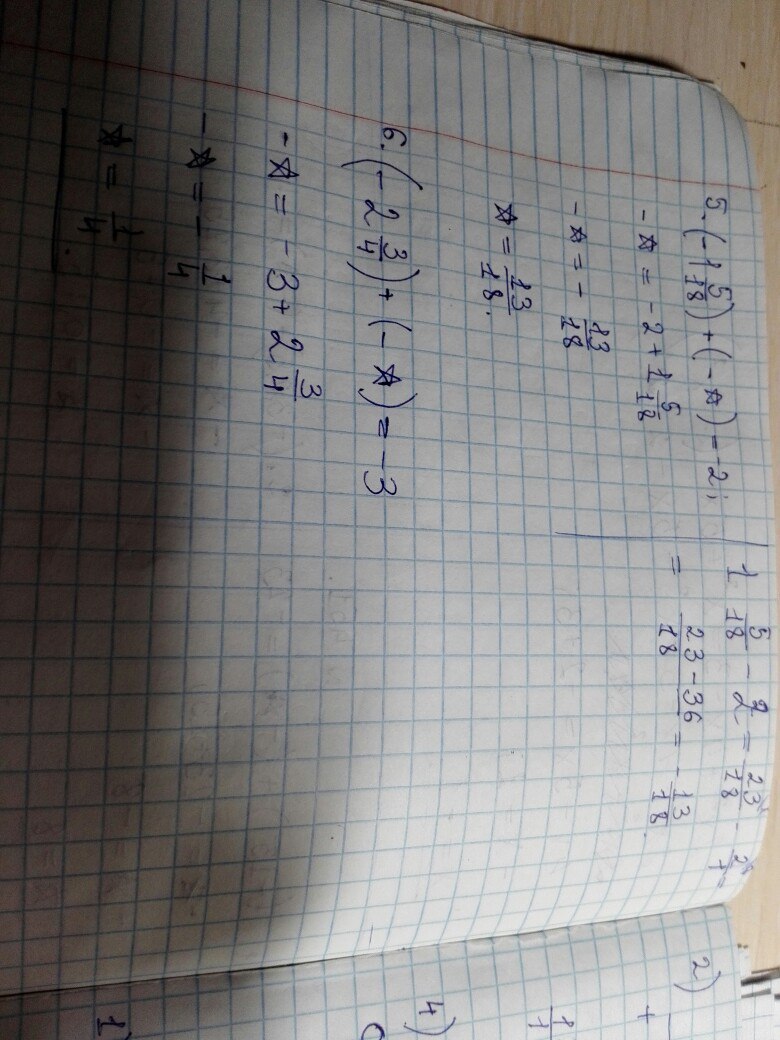 5. (-1 5/18) + (-☆) = -2;
-☆ = -2 + 1 5/18
-☆ = - 13/18
☆ = 13/18.
1 5/18 - 2 = 23/18 - 2/1 =
= 23-36/18 = - 13/18.
6. (-2 3/4) + (-☆) = -3
-☆ = -3 + 2 3/4
-☆ = - 1/4
☆ = 1/4.
2)
+
4)
1)